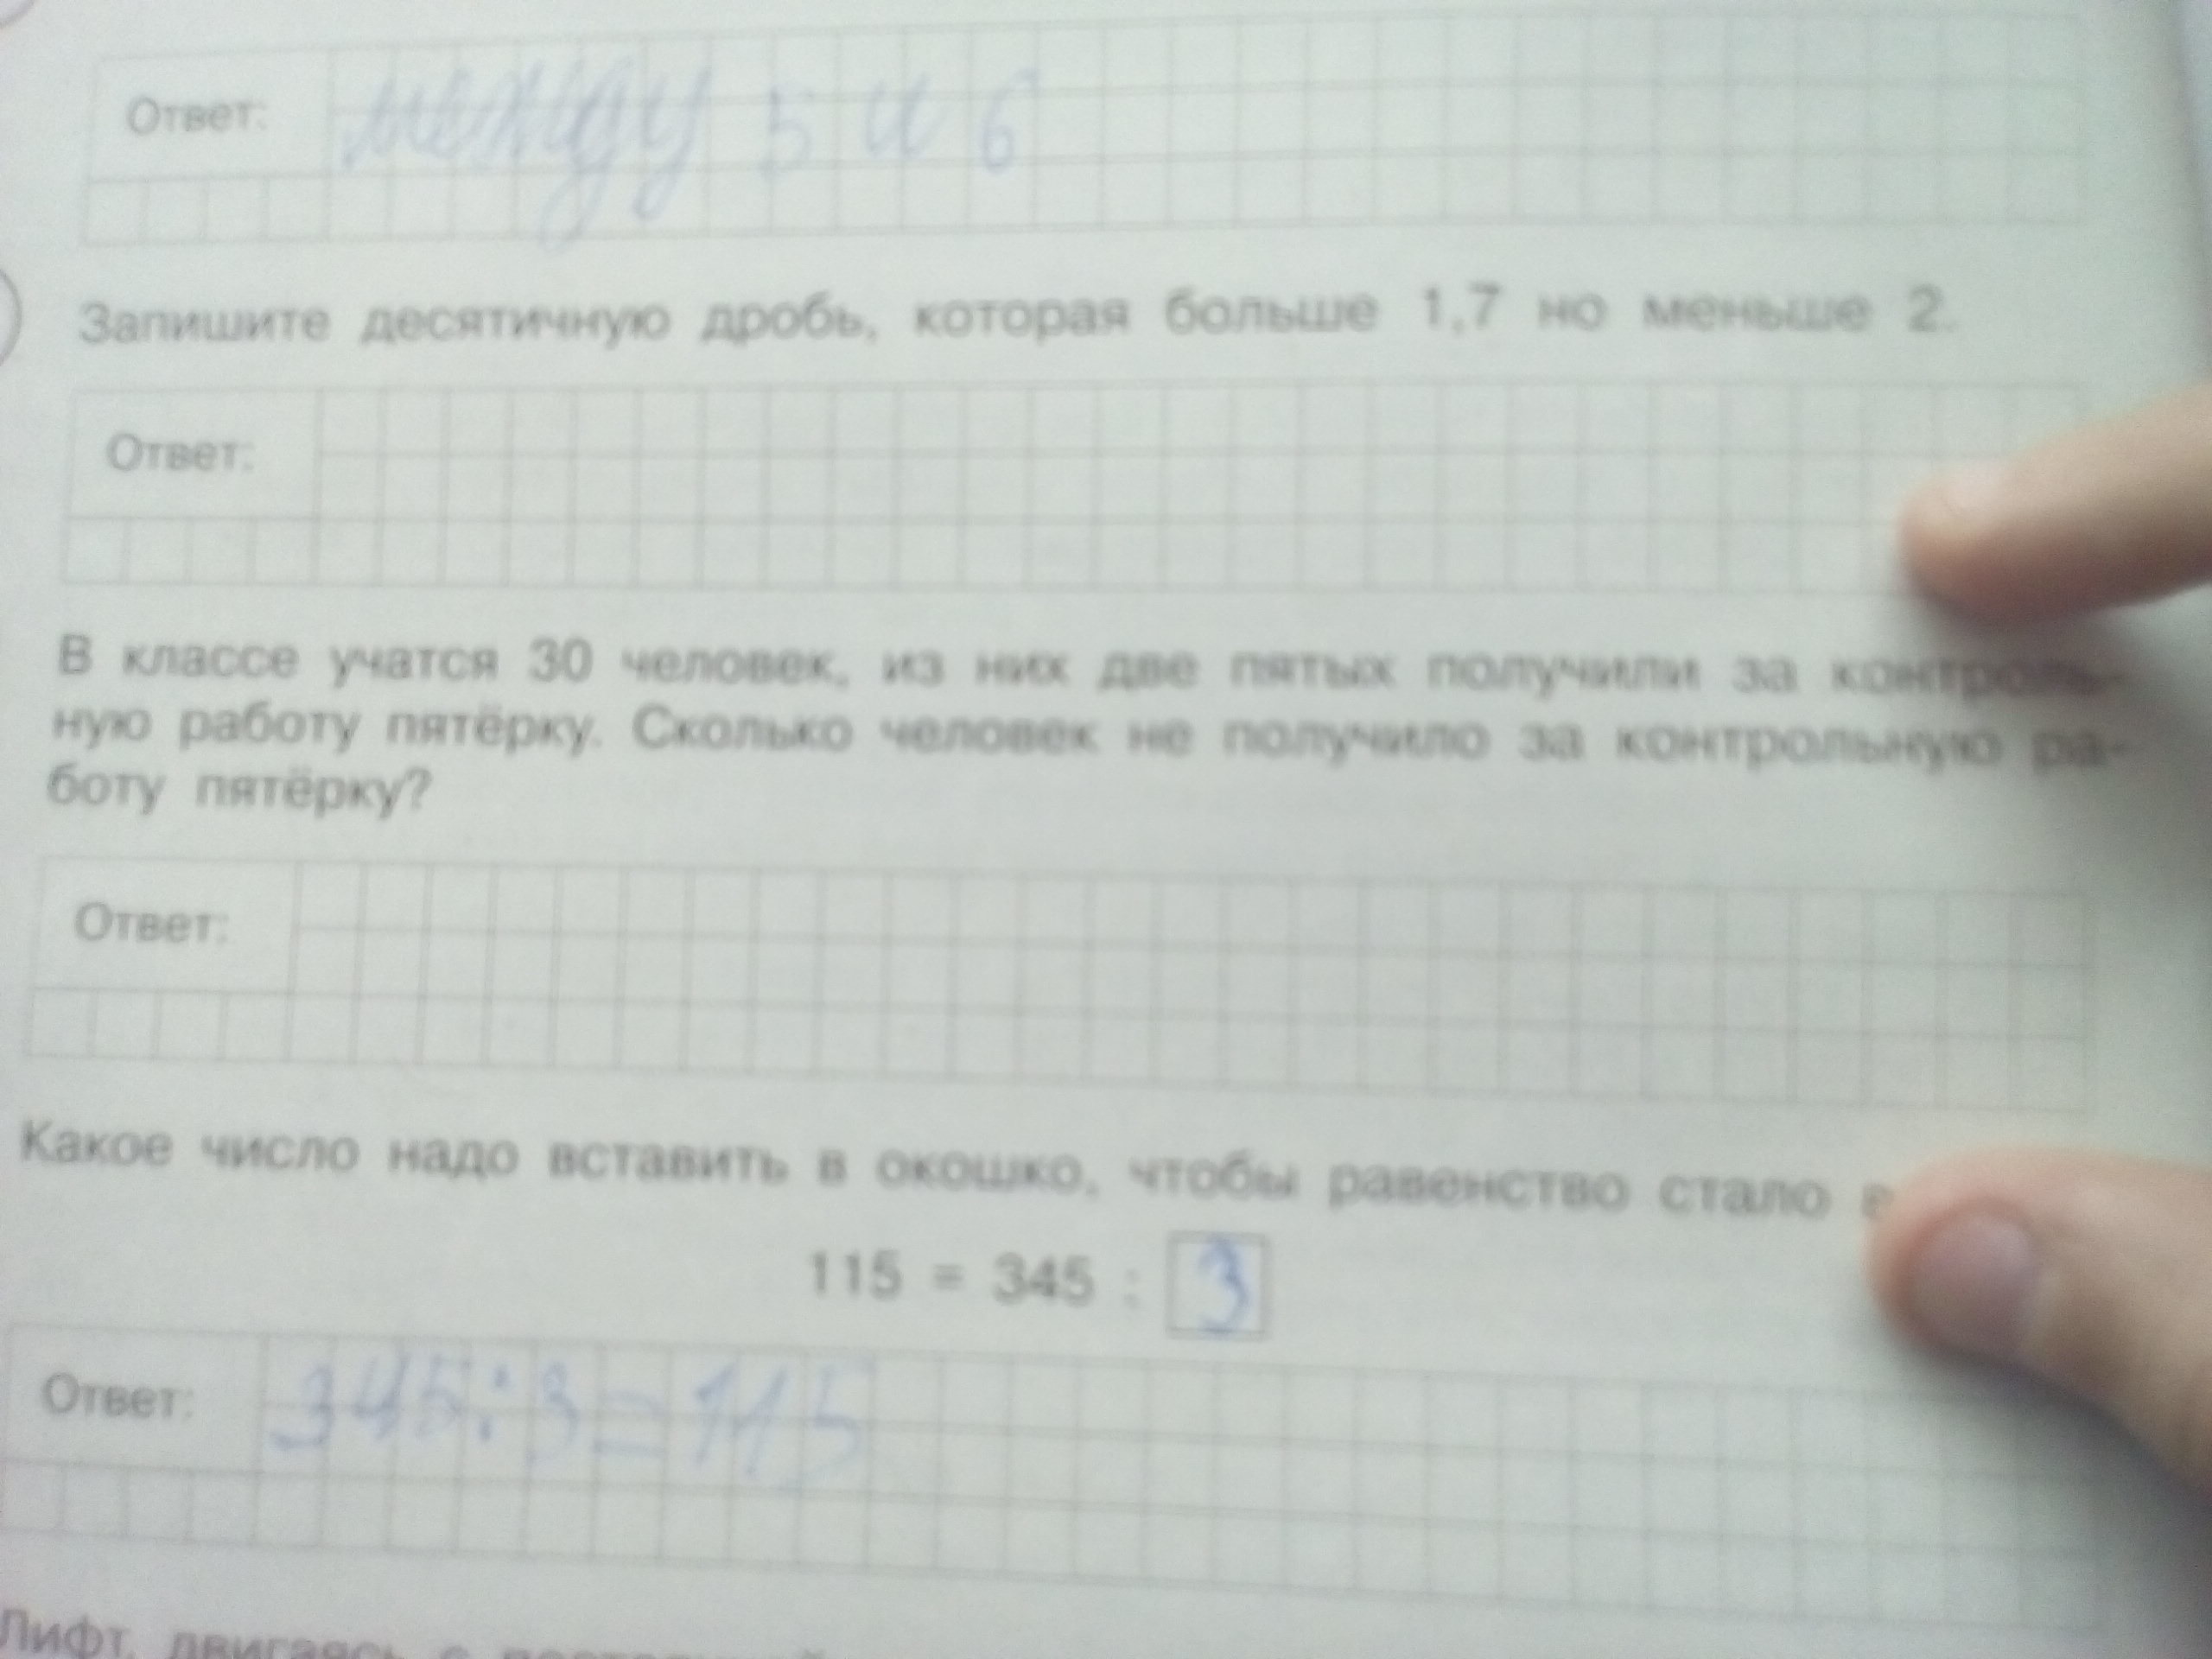 Ответ: между 5 и 6
Запишите десятичную дробь, которая больше 1,7 но меньше 2.
Ответ:
В классе учатся 30 человек, из них две пятых получили за контроль-
ную работу пятёрку. Сколько человек не получило за контрольную ра-
боту пятёрку?
Ответ:
Какое число надо вставить в окошко, чтобы равенство стало
115 = 345 : 3
Ответ: 345:3=115
Лифт, двигаясь с